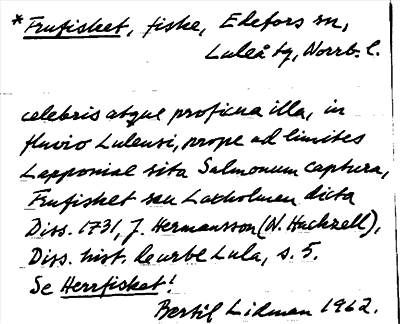 *Frufisket, fiske, Edefors sn,
Luleå tg, Norrb. l.
celebris atque proficua illa, in
fluvio Lulensi, prope ad limites
Lapponiae sita Salmonum captura,
Frufisket seu Laxholmen dicta
Diss. 1731, J. Hermansson (N. Hackzell),
Diss. hist. de urbe Lula, s. 5.
Se Herrfisket!
Bertil Lidman 1962.